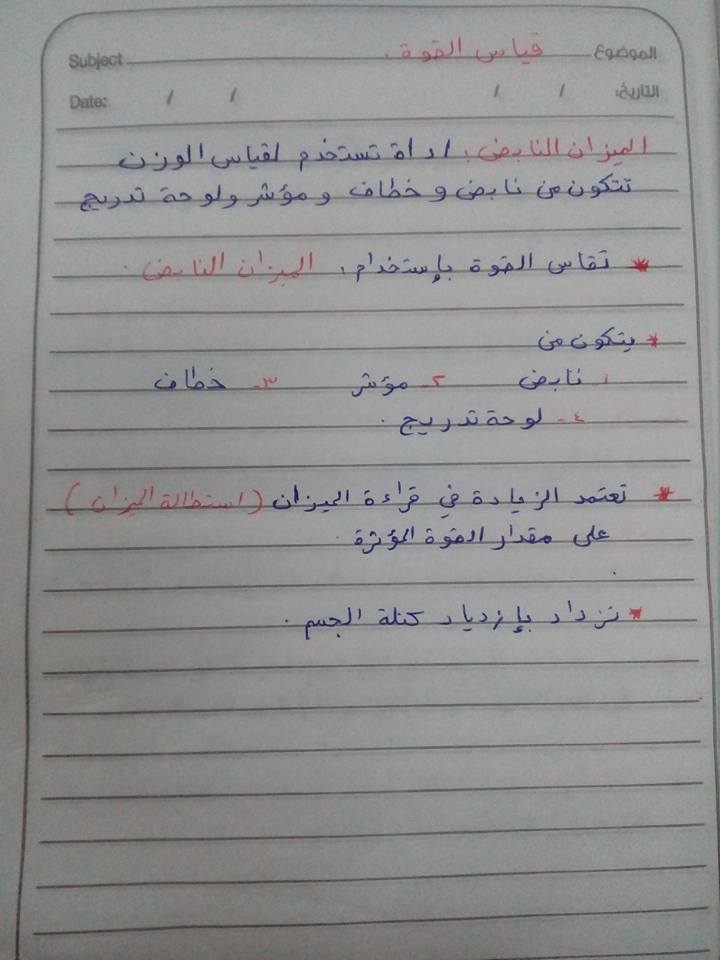 Subject قياس القوة . الموضوع
Date: / / / / التاريخ:
الميزان النابض : اداة تستخدم لقياس الوزن
تتكون من نابض و خطاف و مؤشر ولوحة تدريج
* تقاس القوة بإستخدام : الميزان النابض .
* يتكون من
١- نابض ٢- مؤشر ٣- خطاف
٤- لوحة تدريج .
* تعتمد الزيادة في قراءة الميزان (استطالة الميزان)
على مقدار القوة المؤثرة .
* تزداد بإزدياد كتلة الجسم .